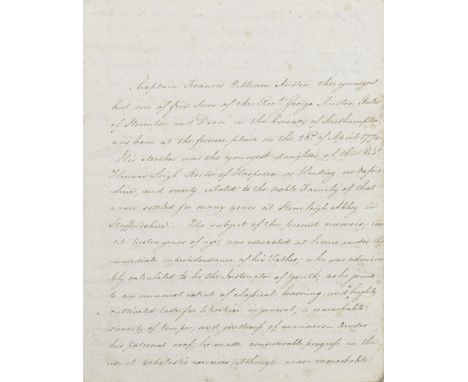 Captain Francis William Austen the youngest
but one of five Sons of the Revd. George Austen, Rector
of Steventon and Dean in the County of Southampton,
was born at the former place on the 23d of April 1774.
His Mother was the youngest daughter of the Revd.
Thomas Leigh Rector of Harpsden or Harding in Oxford-
shire, and nearly related to the noble Family of that
name settled for many years at Stoneleigh Abbey in
Staffordshire. The subject of the present memoir, un-
til twelve years of age was educated at home under the
immediate superintendance of his Father, who was admira-
bly calculated to be the Instructor of youth, as he joined
to an unusual extent of classical learning, and highly
cultivated taste for literature in general, a remarkable
suavity of temper, and gentleness of manners. Under
his paternal roof, he made considerable progress in the
usual scholastic exercises, although never remarkable